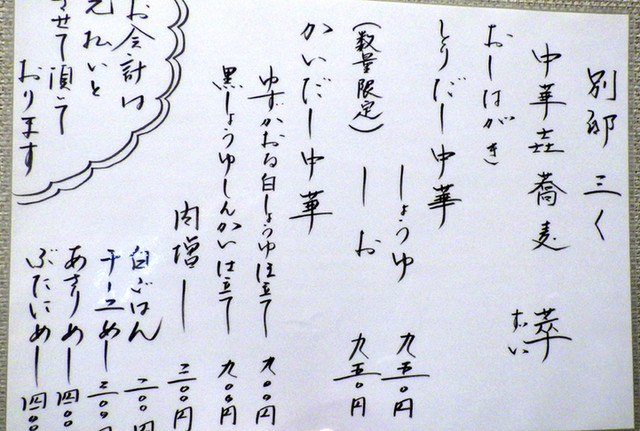 別邸 三く
中華㐂蕎麦 萃
すい
おしながき
とりだし中華
しょうゆ 九五〇円
しお 九五〇円
(数量限定)
かいだし中華
ゆずかおる白しょうゆ仕立て 九〇〇円
黒しょうゆしんかい仕立て 九〇〇円
肉増し 三〇〇円
白ごはん 二〇〇円
チーユめし 三〇〇円
あさりめし 四〇〇
ぶたにめし 四〇〇
お会計は
先払いと
させて頂いて
おります